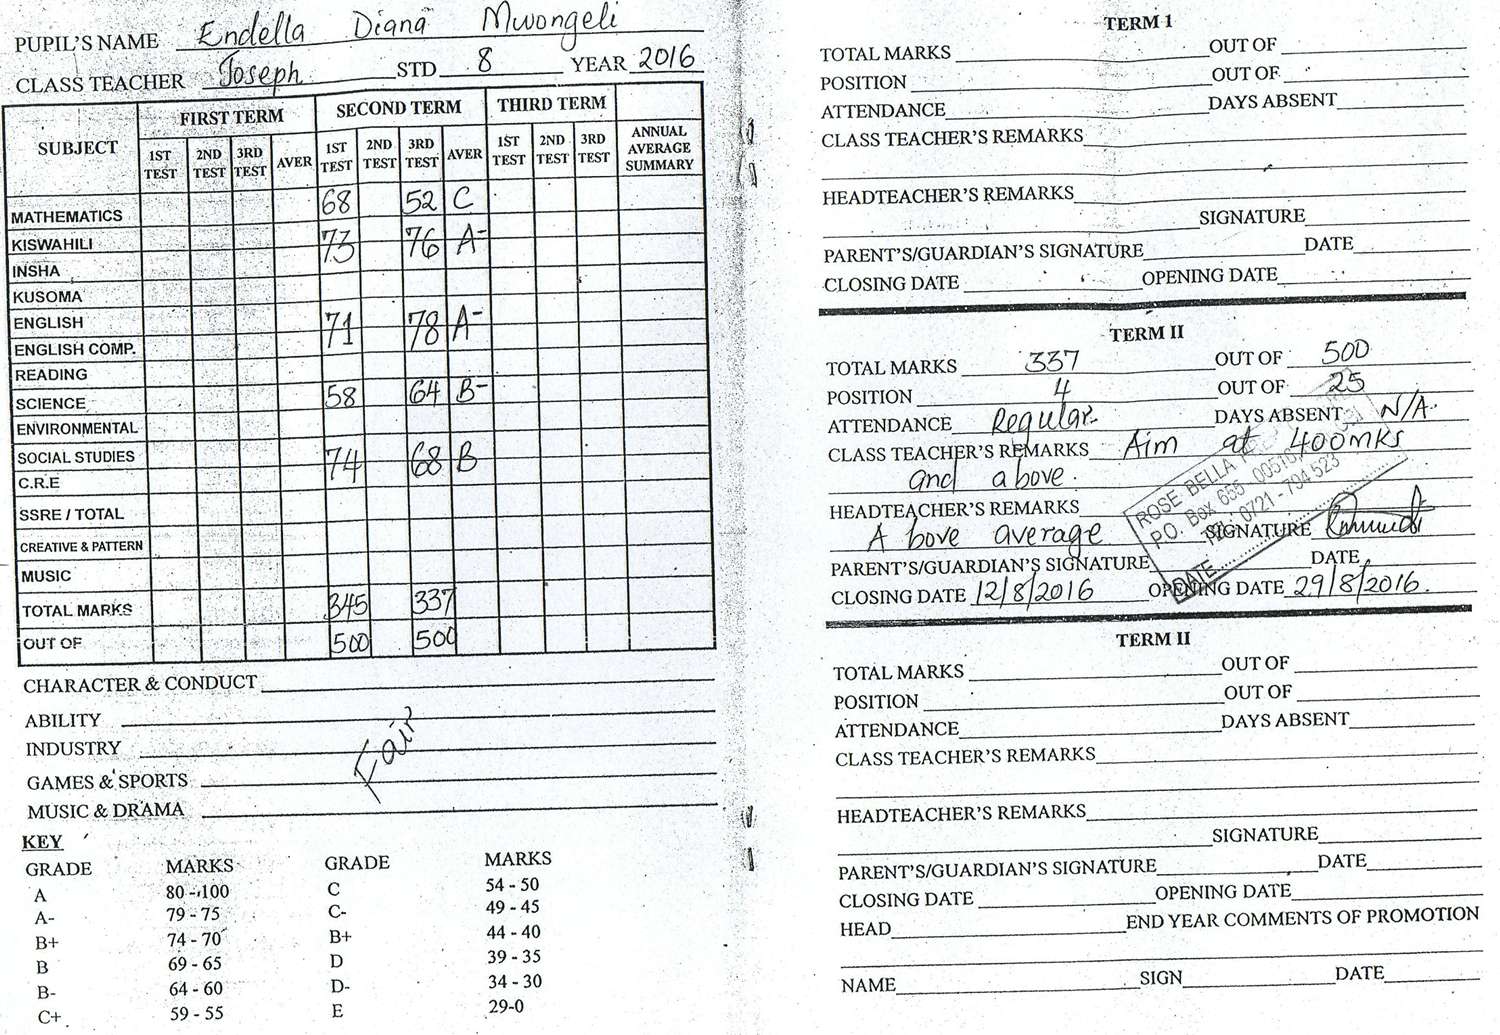 PUPIL'S NAME Endella Diana Mwongeli
CLASS TEACHER Joseph STD 8 YEAR 2016
SUBJECT FIRST TERM SECOND TERM THIRD TERM ANNUAL AVERAGE SUMMARY
1ST TEST 2ND TEST 3RD TEST AVER 1ST TEST 2ND TEST 3RD TEST AVER 1ST TEST 2ND TEST 3RD TEST
MATHEMATICS 68 52 C
KISWAHILI 73 76 A-
INSHA
KUSOMA
ENGLISH 71 78 A-
ENGLISH COMP.
READING
SCIENCE 58 64 B-
ENVIRONMENTAL
SOCIAL STUDIES 74 68 B
C.R.E
SSRE / TOTAL
CREATIVE & PATTERN
MUSIC
TOTAL MARKS 345 337
OUT OF 500 500
CHARACTER & CONDUCT
ABILITY
INDUSTRY Fair
GAMES & SPORTS
MUSIC & DRAMA
KEY
GRADE MARKS GRADE MARKS
A 80-100 C 54 - 50
A- 79 - 75 C- 49 - 45
B+ 74 - 70 B+ 44 - 40
B 69 - 65 D 39 - 35
B- 64 - 60 D- 34 - 30
C+ 59 - 55 E 29-0
TERM 1
TOTAL MARKS OUT OF
POSITION OUT OF
ATTENDANCE DAYS ABSENT
CLASS TEACHER'S REMARKS
HEADTEACHER'S REMARKS
SIGNATURE
PARENT'S/GUARDIAN'S SIGNATURE DATE
CLOSING DATE OPENING DATE
TERM II
TOTAL MARKS 337 OUT OF 500
POSITION 4 OUT OF 25
ATTENDANCE Regular DAYS ABSENT N/A.
CLASS TEACHER'S REMARKS Aim at 400mks
and above.
HEADTEACHER'S REMARKS
Above average SIGNATURE
PARENT'S/GUARDIAN'S SIGNATURE DATE
CLOSING DATE 12/8/2016 OPENING DATE 29/8/2016.
ROSE BELLA
P.O. Box 655 - 00510
TEL: 0721 - 704 523
DATE
TERM II
TOTAL MARKS OUT OF
POSITION OUT OF
ATTENDANCE DAYS ABSENT
CLASS TEACHER'S REMARKS
HEADTEACHER'S REMARKS
SIGNATURE
PARENT'S/GUARDIAN'S SIGNATURE DATE
CLOSING DATE OPENING DATE
HEAD END YEAR COMMENTS OF PROMOTION
NAME SIGN DATE